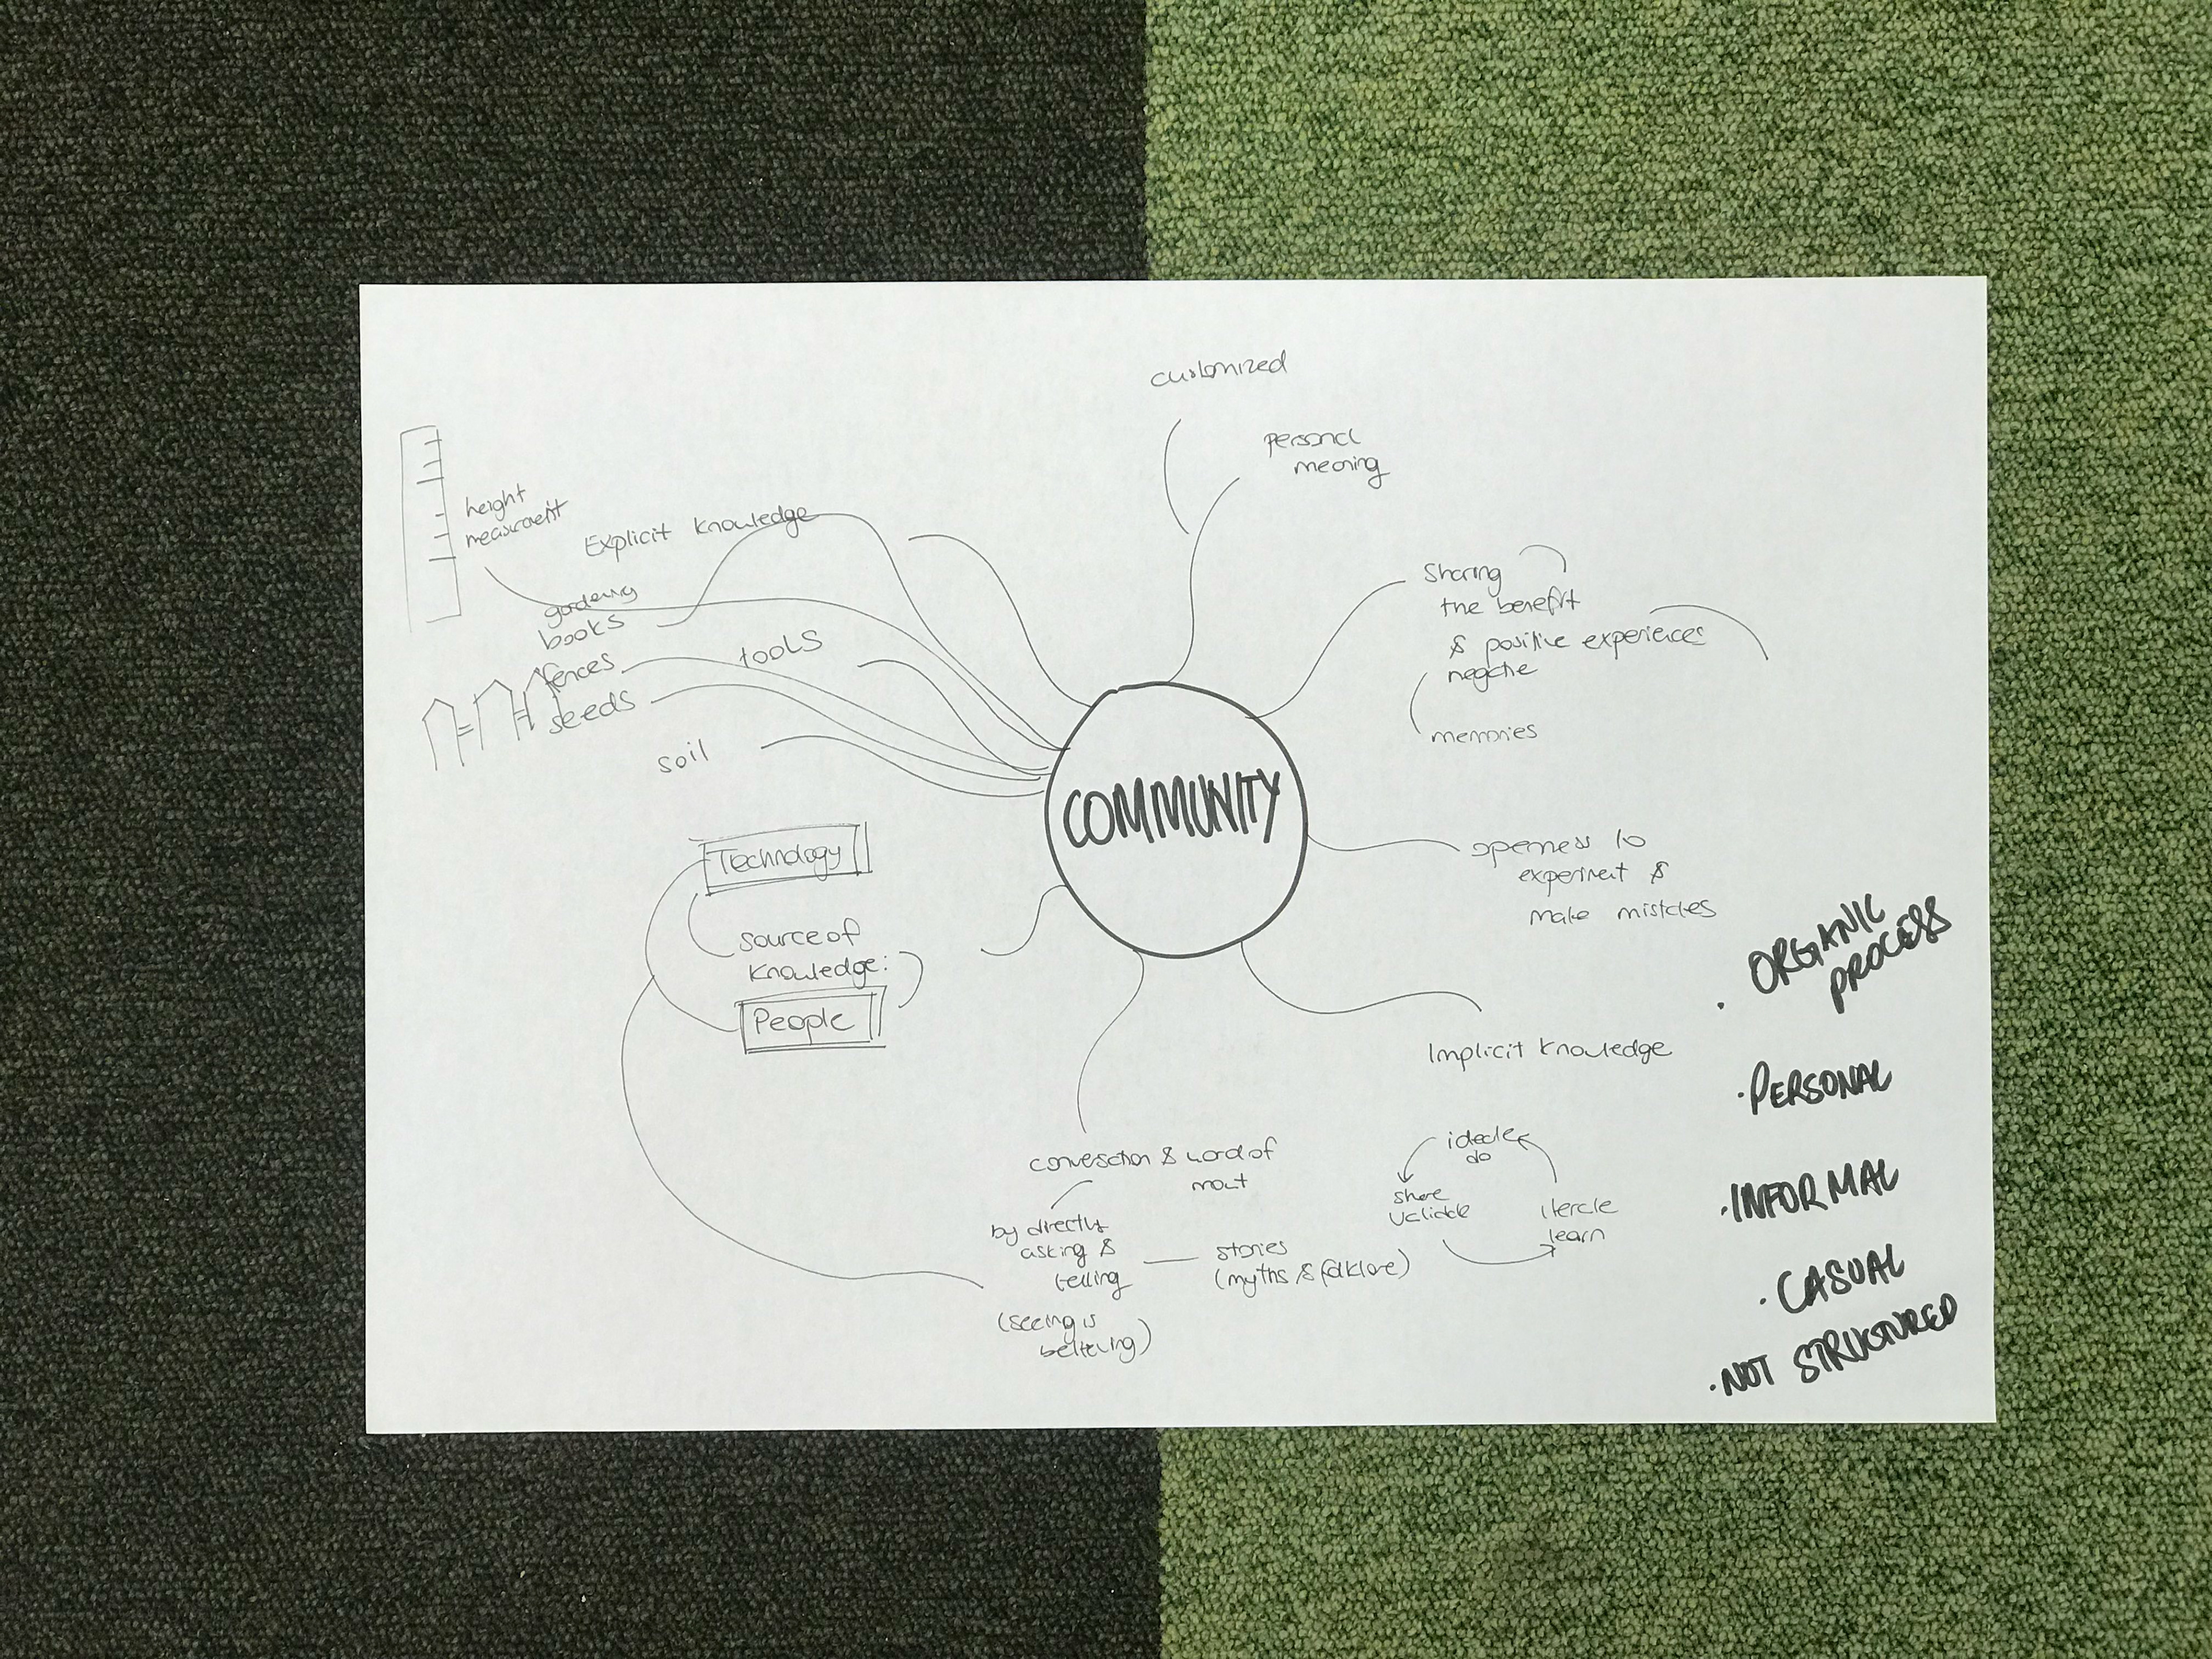 customized
personal
meaning
height
measurement
Explicit knowledge
gardening
books
fences
seeds
tools
soil
Sharing
the benefit
& positive experiences
negative
memories
COMMUNITY
openness to
experiment &
make mistakes
Technology
source of
knowledge:
People
Implicit knowledge
conversation & word of
mout
by directly
asking &
telling
(seeing is
believing)
stories
(myths & folklore)
ideate
do
share
validate
iterate
learn
. ORGANIC
PROCESS
. PERSONAL
. INFORMAL
. CASUAL
. NOT STRUCTURED